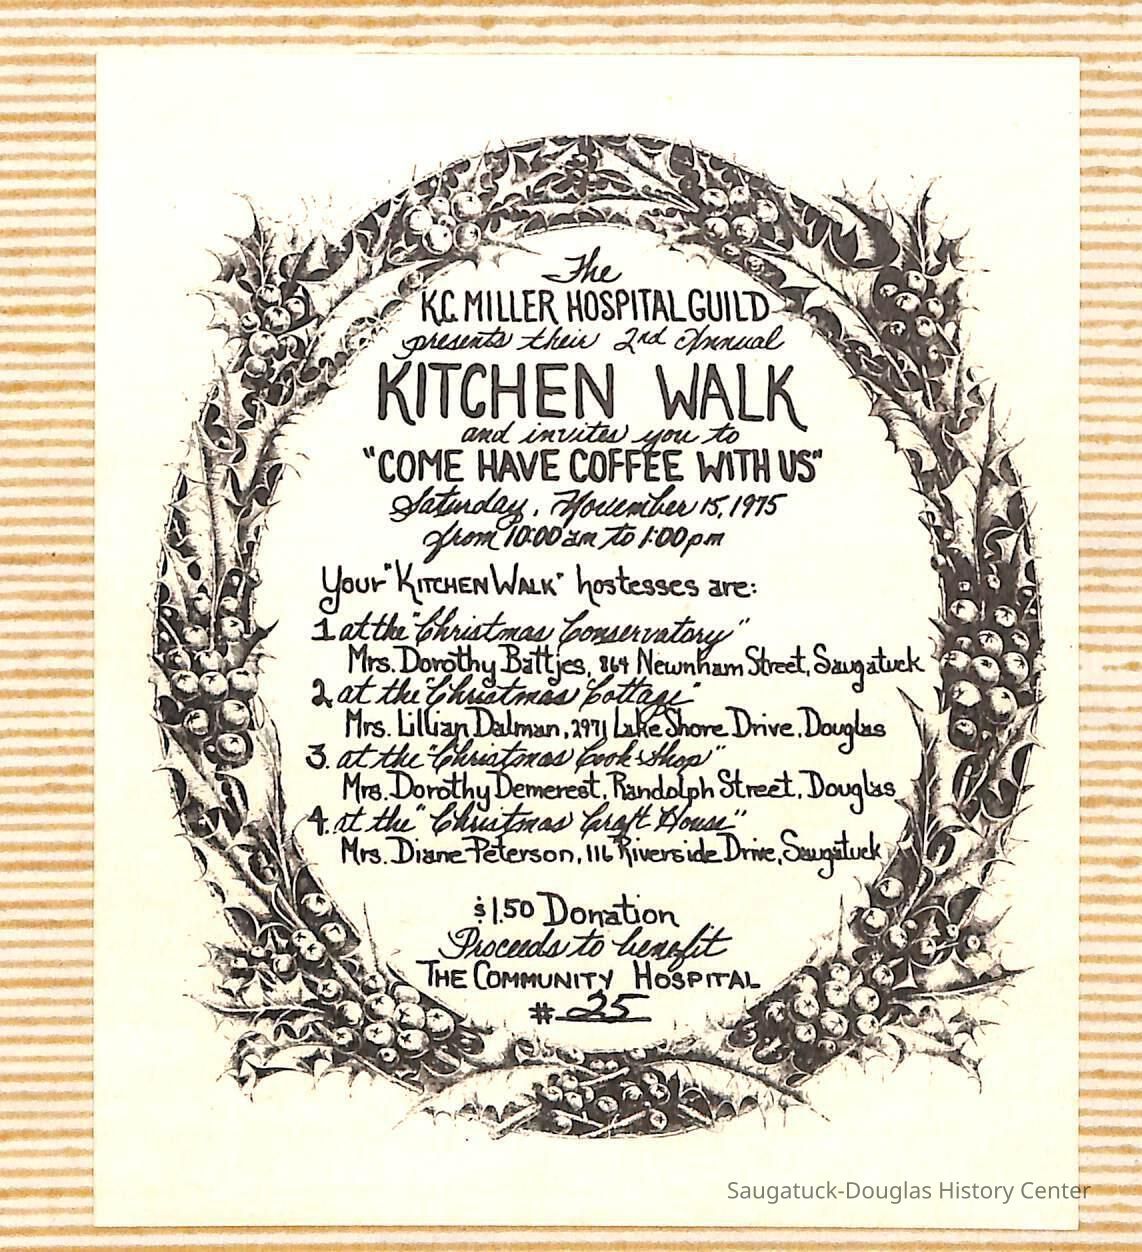 The
K.C. MILLER HOSPITAL GUILD
presents their 2nd Annual
KITCHEN WALK
and invites you to
"COME HAVE COFFEE WITH US"
Saturday, November 15, 1975
from 10:00 am to 1:00 pm
Your "KITCHEN WALK" hostesses are:
1 at the "Christmas Conservatory"
Mrs. Dorothy Battjes, 864 Newnham Street, Saugatuck
2. at the "Christmas Cottage"
Mrs. Lillian Dalman, 2971 Lake Shore Drive, Douglas
3. at the "Christmas Cook Shop"
Mrs. Dorothy Demerest, Randolph Street, Douglas
4. at the "Christmas Craft House"
Mrs. Diane Peterson, 116 Riverside Drive, Saugatuck
$1.50 Donation
Proceeds to benefit
THE COMMUNITY HOSPITAL
# 25
Saugatuck-Douglas History Center